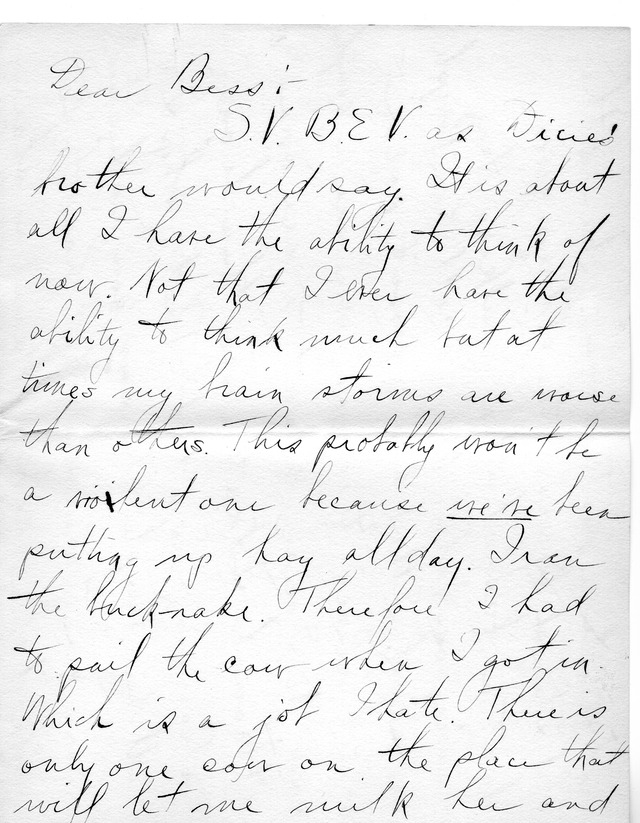 Dear Bess:-
S.V. B.E.V. as Dicie's
brother would say. It is about
all I have the ability to think of
now. Not that I ever have the
ability to think much but at
times my brain storms are worse
than others. This probably won't be
a violent one because we've been
putting up hay all day. I ran
the buck-rake. Therefore I had
to pail the cow when I got in.
Which is a job I hate. There is
only one cow on the place that
will let me milk her and